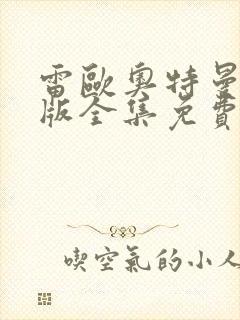 雷歐奧特曼
版全集免費
喫空氣的小人